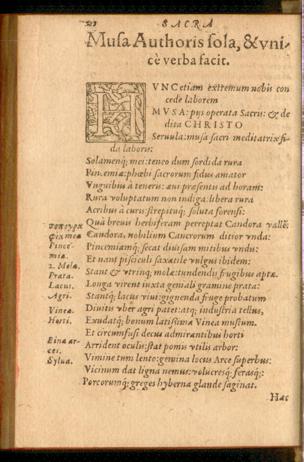 SACRA
Musa Authoris sola, & vni-
cè verba facit.
HVNC etiam extremum nobis con
cede laborem
MVSA: pijs operata Sacris: & de
dita CHRISTO
Seruula: musa sacri meditatrix fi-
da laboris:
Solamenq́; mei: teneo dum sordida rura
Vin. emiæ: phœbi sacrorum fidus amator
Vnguibus à teneris: aut præsenti ad horam:
Rura voluptatum non indiga: libera rura
Acribus à curis: strepituq́; soluta forensi:
Quà breuis herbiferam perreptat Candora vallẽ:
Candora, nobilium Cancrorum ditior vnda:
Pincemiamq́; secat diuisam mitibus vndis:
Et nant pisciculi saxatile vulgus ibidem:
Stant & vtrinq́; molæ: tundendis frugibus aptæ.
Longa virent iuxta geniali gramine prata:
Stantq́; lacus viui: gignenda fruge probatum
Diuitis vber agri patet: atq́; industria tellus,
Exudatq́; bonum latißima Vinea mustum.
Et circumfusi decus admirantibus horti
Arrident oculis: stat pomis vtilis arbor:
Vimine tum lento: gemina locus Arce superbus:
Vicinum dat ligna nemus: volucresq́; ferasq́;:
Porcorumq́; greges hyberna glande saginat.
Pince-
miæ.
2. Molæ.
Prata.
Lacus.
Agri.
Vineæ.
Horti.
Binæ ar-
ces.
Sylua.
Hæc